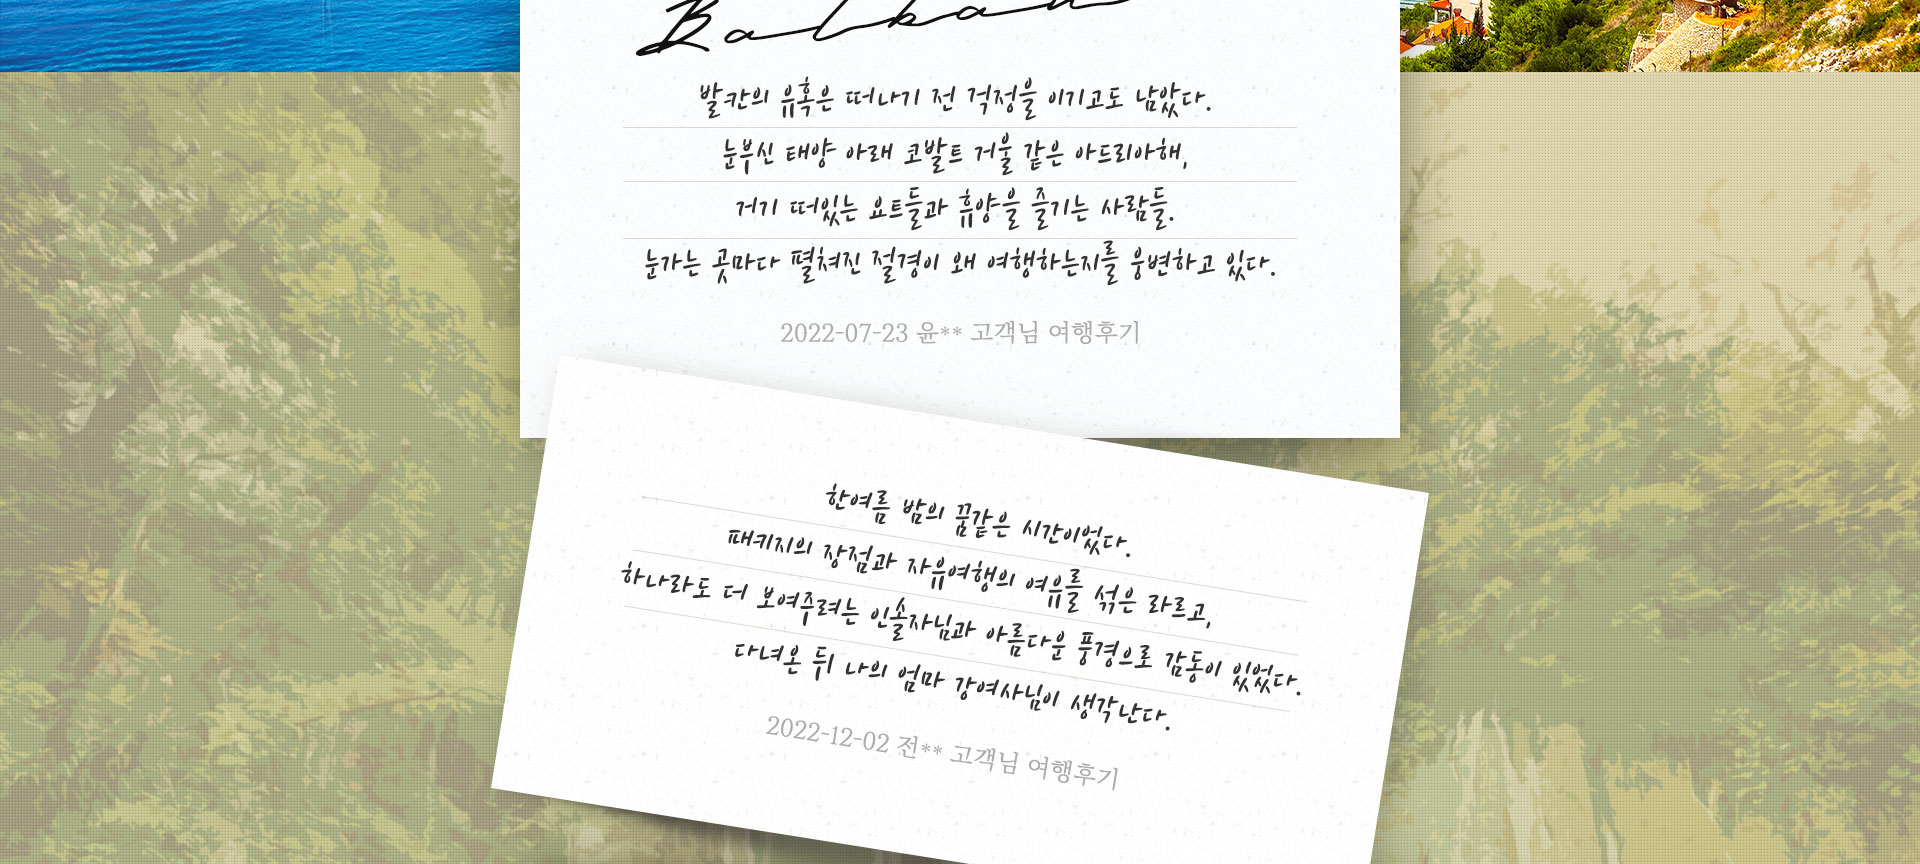 Balkan
발칸의 유혹은 떠나기 전 걱정을 이기고도 남았다.
눈부신 태양 아래 코발트 거울 같은 아드리아해,
거기 떠있는 요트들과 휴양을 즐기는 사람들.
눈가는 곳마다 펼쳐진 절경이 왜 여행하는지를 웅변하고 있다.
2022-07-23 윤** 고객님 여행후기
한여름 밤의 꿈같은 시간이었다.
패키지의 장점과 자유여행의 여유를 섞은 라르고,
하나라도 더 보여주려는 인솔자님과 아름다운 풍경으로 감동이 있었다.
다녀온 뒤 나의 엄마 강여사님이 생각난다.
2022-12-02 전** 고객님 여행후기